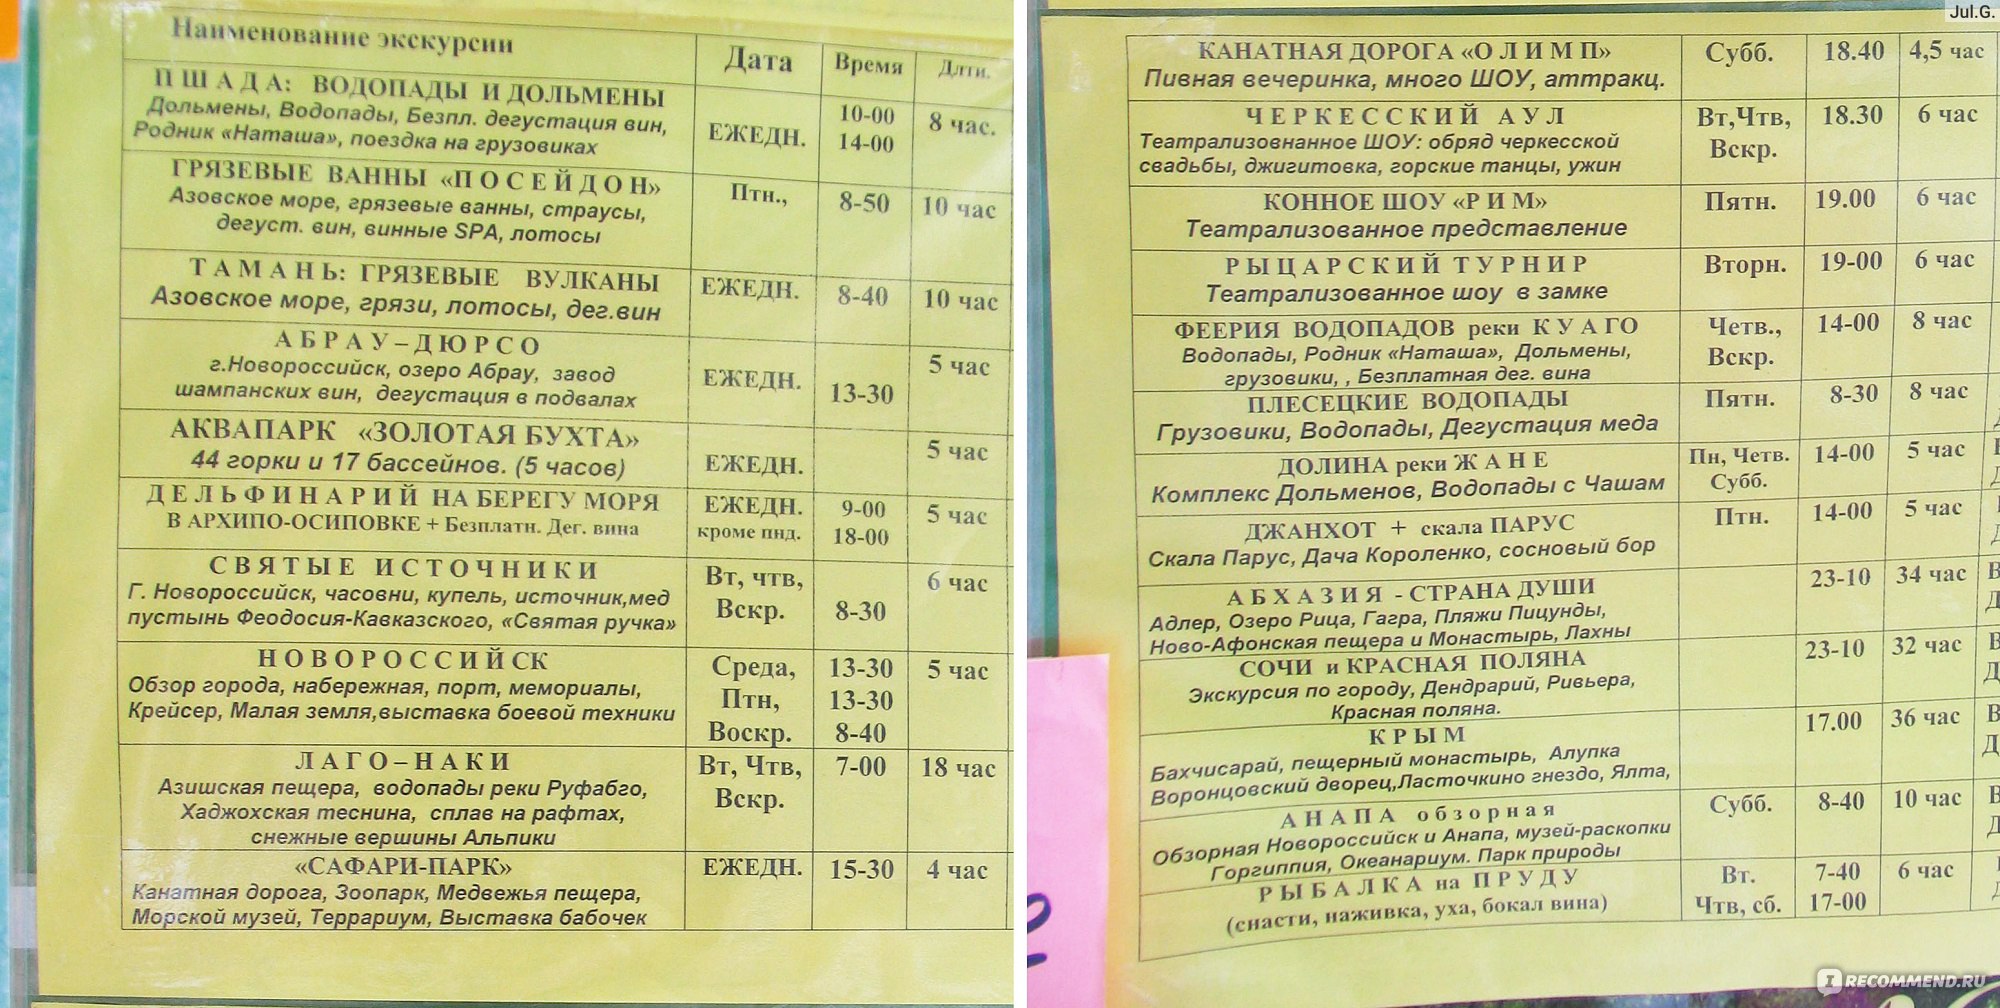 Наименование экскурсии Дата Время Длти.
ПШАДА: ВОДОПАДЫ И ДОЛЬМЕНЫ
Дольмены, Водопады, Безпл. дегустация вин,
Родник «Наташа», поездка на грузовиках
ЕЖЕДН. 10-00 8 час.
14-00
ГРЯЗЕВЫЕ ВАННЫ «ПОСЕЙДОН»
Азовское море, грязевые ванны, страусы,
дегуст. вин, винные SPA, лотосы
Птн., 8-50 10 час
ТАМАНЬ: ГРЯЗЕВЫЕ ВУЛКАНЫ
Азовское море, грязи, лотосы, дег.вин
ЕЖЕДН. 8-40 10 час
АБРАУ–ДЮРСО
г.Новороссийск, озеро Абрау, завод
шампанских вин, дегустация в подвалах
ЕЖЕДН. 13-30 5 час
АКВАПАРК «ЗОЛОТАЯ БУХТА»
44 горки и 17 бассейнов. (5 часов)
ЕЖЕДН. 5 час
ДЕЛЬФИНАРИЙ НА БЕРЕГУ МОРЯ
В АРХИПО-ОСИПОВКЕ + Безплатн. Дег. вина
ЕЖЕДН. 9-00 5 час
кроме пнд. 18-00
СВЯТЫЕ ИСТОЧНИКИ
Г. Новороссийск, часовни, купель, источник,мед
пустынь Феодосия-Кавказского, «Святая ручка»
Вт, чтв, 6 час
Вскр. 8-30
НОВОРОССИЙСК
Обзор города, набережная, порт, мемориалы,
Крейсер, Малая земля,выставка боевой техники
Среда, 13-30 5 час
Птн, 13-30
Воскр. 8-40
ЛАГО–НАКИ
Азишская пещера, водопады реки Руфабго,
Хаджохская теснина, сплав на рафтах,
снежные вершины Альпики
Вт, Чтв, 7-00 18 час
Вскр.
«САФАРИ-ПАРК»
Канатная дорога, Зоопарк, Медвежья пещера,
Морской музей, Террариум, Выставка бабочек
ЕЖЕДН. 15-30 4 час
Jul.G.
КАНАТНАЯ ДОРОГА «ОЛИМП»
Пивная вечеринка, много ШОУ, аттракц.
Субб. 18.40 4,5 час
ЧЕРКЕССКИЙ АУЛ
Театрализовнанное ШОУ: обряд черкесской
свадьбы, джигитовка, горские танцы, ужин
Вт,Чтв, 18.30 6 час
Вскр.
КОННОЕ ШОУ «РИМ»
Театрализованное представление
Пятн. 19.00 6 час
РЫЦАРСКИЙ ТУРНИР
Театрализованное шоу в замке
Вторн. 19-00 6 час
ФЕЕРИЯ ВОДОПАДОВ реки КУАГО
Водопады, Родник «Наташа», Дольмены,
грузовики, , Безплатная дег. вина
Четв., 14-00 8 час
Вскр.
ПЛЕСЕЦКИЕ ВОДОПАДЫ
Грузовики, Водопады, Дегустация меда
Пятн. 8-30 8 час
ДОЛИНА реки ЖАНЕ
Комплекс Дольменов, Водопады с Чашам
Пн, Четв. 14-00 5 час
Субб.
ДЖАНХОТ + скала ПАРУС
Скала Парус, Дача Короленко, сосновый бор
Птн. 14-00 5 час
АБХАЗИЯ - СТРАНА ДУШИ
Адлер, Озеро Рица, Гагра, Пляжи Пицунды,
Ново-Афонская пещера и Монастырь, Лахны
23-10 34 час
СОЧИ и КРАСНАЯ ПОЛЯНА
Экскурсия по городу, Дендрарий, Ривьера,
Красная поляна.
23-10 32 час
КРЫМ
Бахчисарай, пещерный монастырь, Алупка
Воронцовский дворец,Ласточкино гнездо, Ялта,
17.00 36 час
АНАПА обзорная
Обзорная Новороссийск и Анапа, музей-раскопки
Горгиппия, Океанариум. Парк природы
Субб. 8-40 10 час
РЫБАЛКА на ПРУДУ
(снасти, наживка, уха, бокал вина)
Вт. 7-40 6 час
Чтв, сб. 17-00
IRECOMMEND.RU